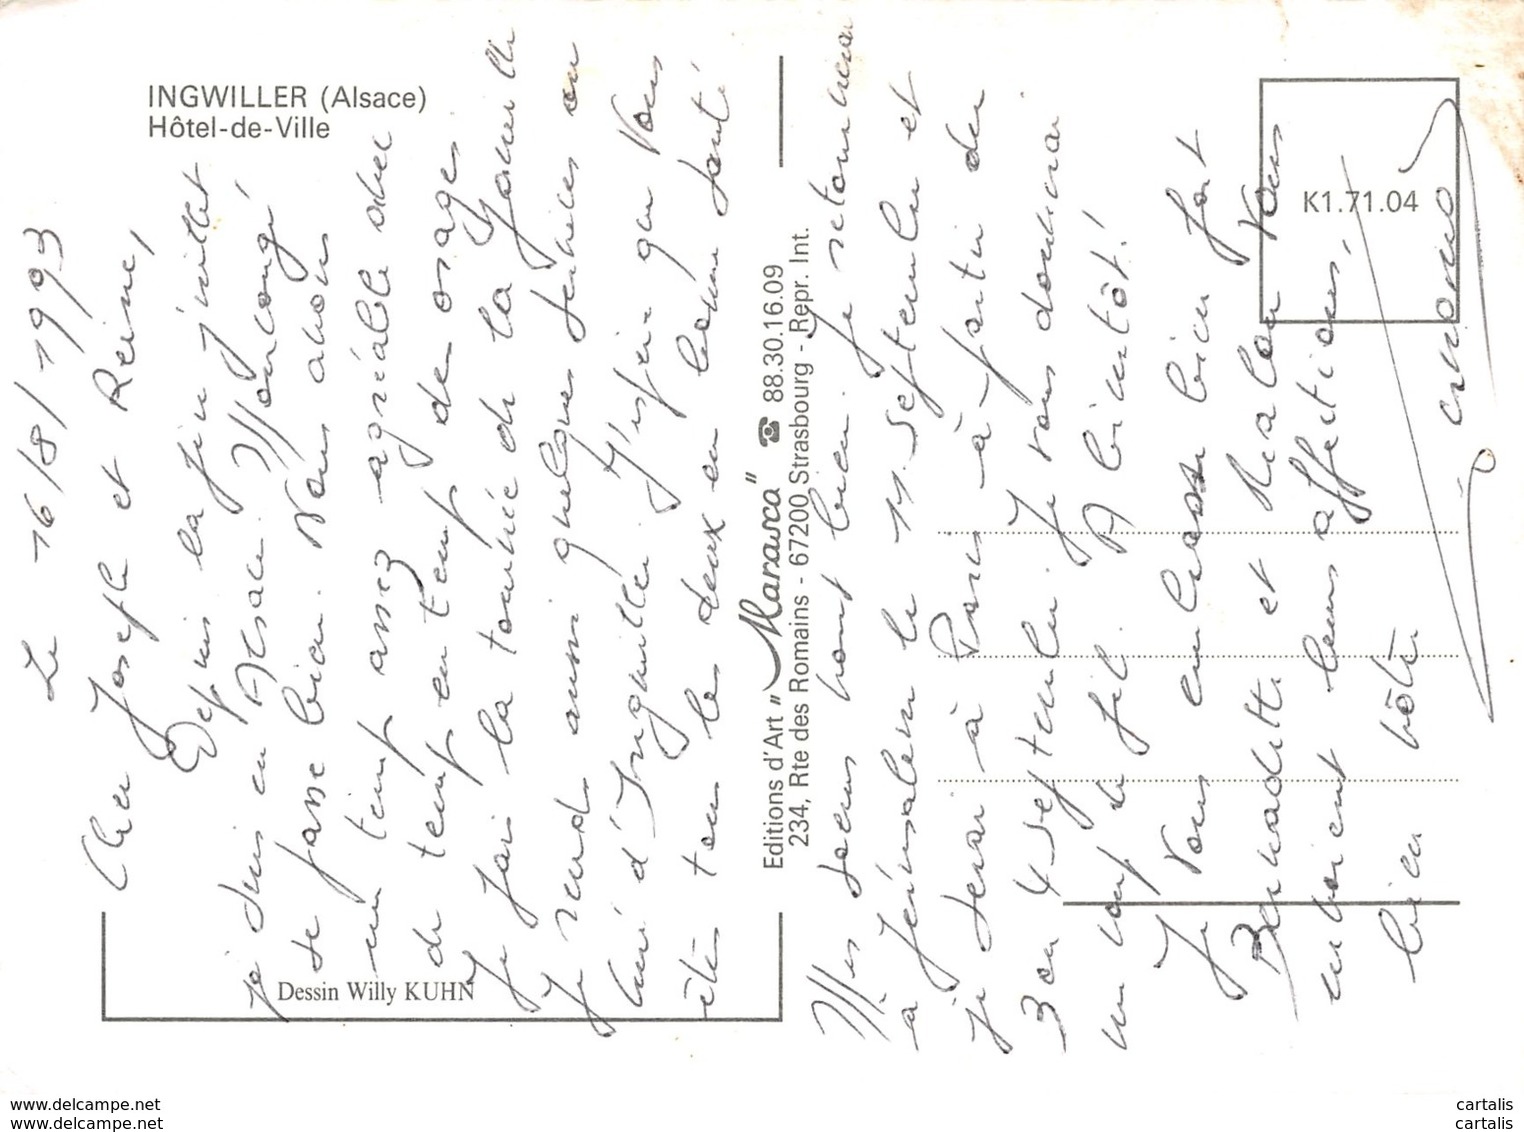 INGWILLER (Alsace)
Hôtel-de-Ville
Le 16/8/1993
Cher Joseph et Reine,
Depuis la fin juillet
je suis en Alsace. Mon congé
se passe bien. Nous avons
un temps assez agréable avec
de temps en temps des orages
Je fais la tournée de la famille
Je rends aussi quelques services au
curé d'Ingwiller. J'espère que vous
êtes tous les deux en bonne santé
Dessin Willy KUHN
Editions d'Art "Marasca" ☎ 88.30.16.09
234, Rte des Romains - 67200 Strasbourg - Repr. Int.
Mes soeurs vont bien. Je retournerai
à Jérusalem le 11 septembre et
je serai à Paris à partir du
3 ou 4 septembre. Je vous donnerai
un coup de fil. A bientôt!
Je vous embrasse bien fort
Bernadette et Vous
envoient leurs affections,
bien vôtre
K1.71.04
www.delcampe.net
www.delcampe.net
cartalis
cartalis